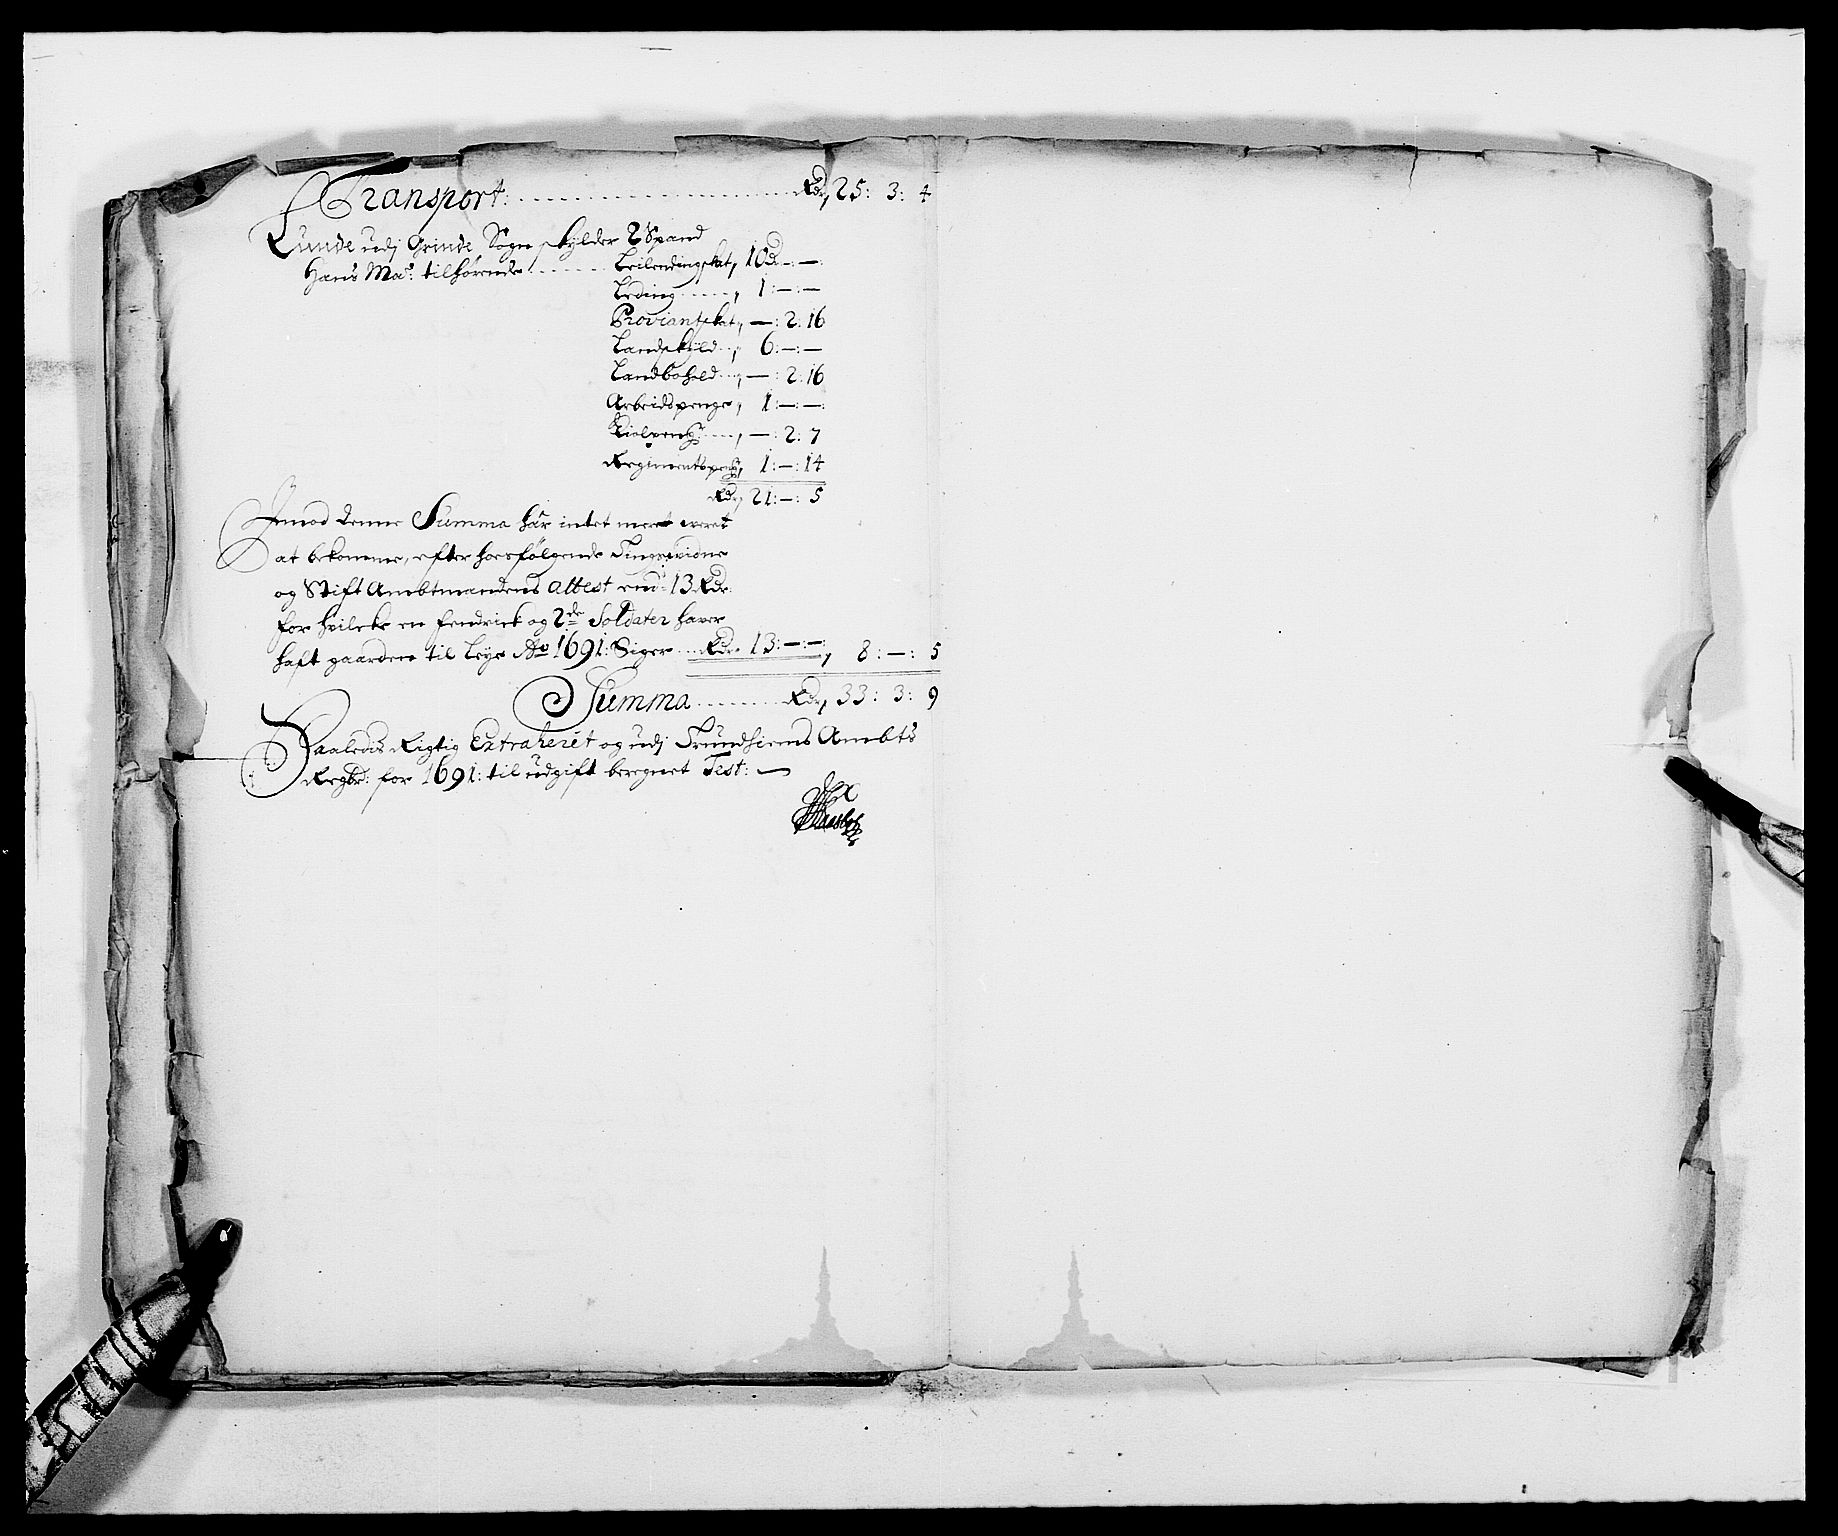 Transport: Rdr, 25: 3: 4
Lunde udj Grinde Sogn skylder 2 Spand
Hans Ma: tilhørende Leilendingskat, 10 Rd —: —:
Leding, 1: —: —
Proviantskat, —: 2: 16
Landskyld, 6: —: —
Landbohold, —: 2: 16
Arbeidspenge, 1: —: —:
—: 2: 7
Regimentspeng, 1: —: 14
Rdr, 21: —: 5
Imod denne Summa har intet meret weret
at bekomme, efter hosfølgende Tingsvidne
og Stift Ambtmandens Attest end: 13 Rdr.
for hvilcke en Fendrick og 2de Soldater haver
haft gaarden til Leye Ao 1691: Siger Rdr. 13: —: —: , 8: —: 5
Summa Rdr, 33: 3: 9
Saaledis Rigtig Extraheret og udj Trundhiems Ambts
Regbr: for 1691: til udgift beregnet Test: —